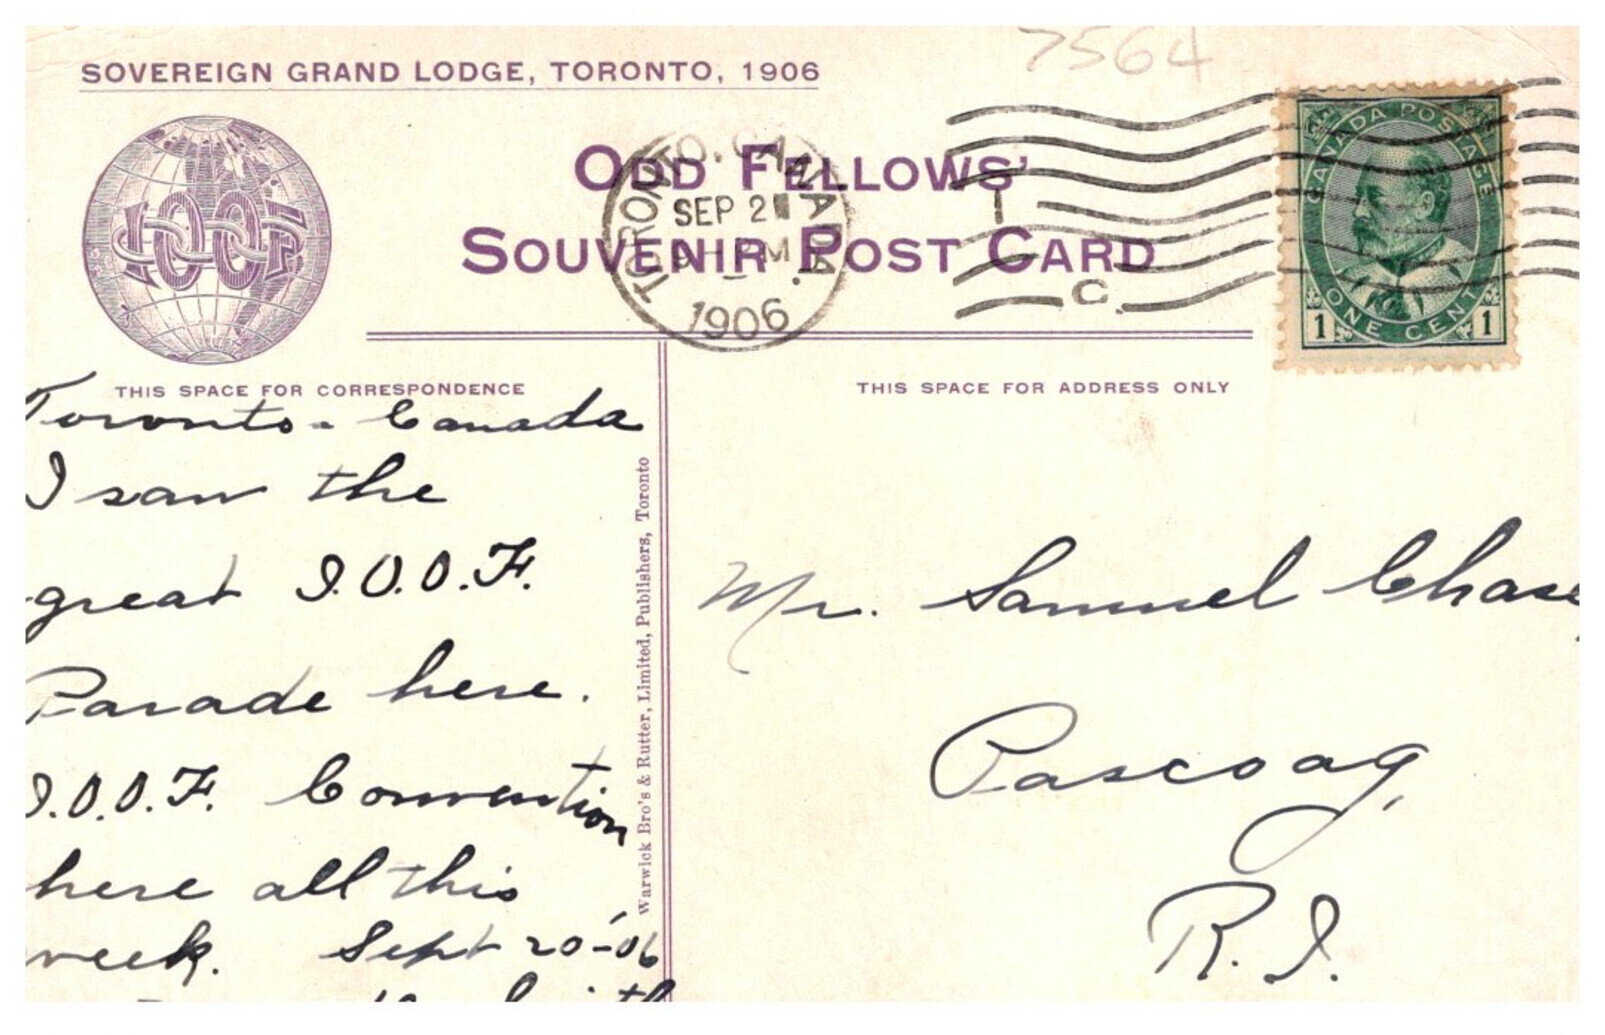 7564
SOVEREIGN GRAND LODGE, TORONTO, 1906
IOOF
ODD FELLOWS'
SOUVENIR POST CARD
TORONTO, CANADA.
SEP 2
PM
1906
T
C.
CANADA POSTAGE
ONE CENT
1 1
THIS SPACE FOR CORRESPONDENCE
THIS SPACE FOR ADDRESS ONLY
Toronto - Canada
I saw the
great I.O.O.F.
Parade here.
I.O.O.F. Convention
here all this
week. Sept 20-'06
Warwick Bro's & Rutter, Limited, Publishers, Toronto
Mr. Samuel Chase,
Pascoag,
R.I.